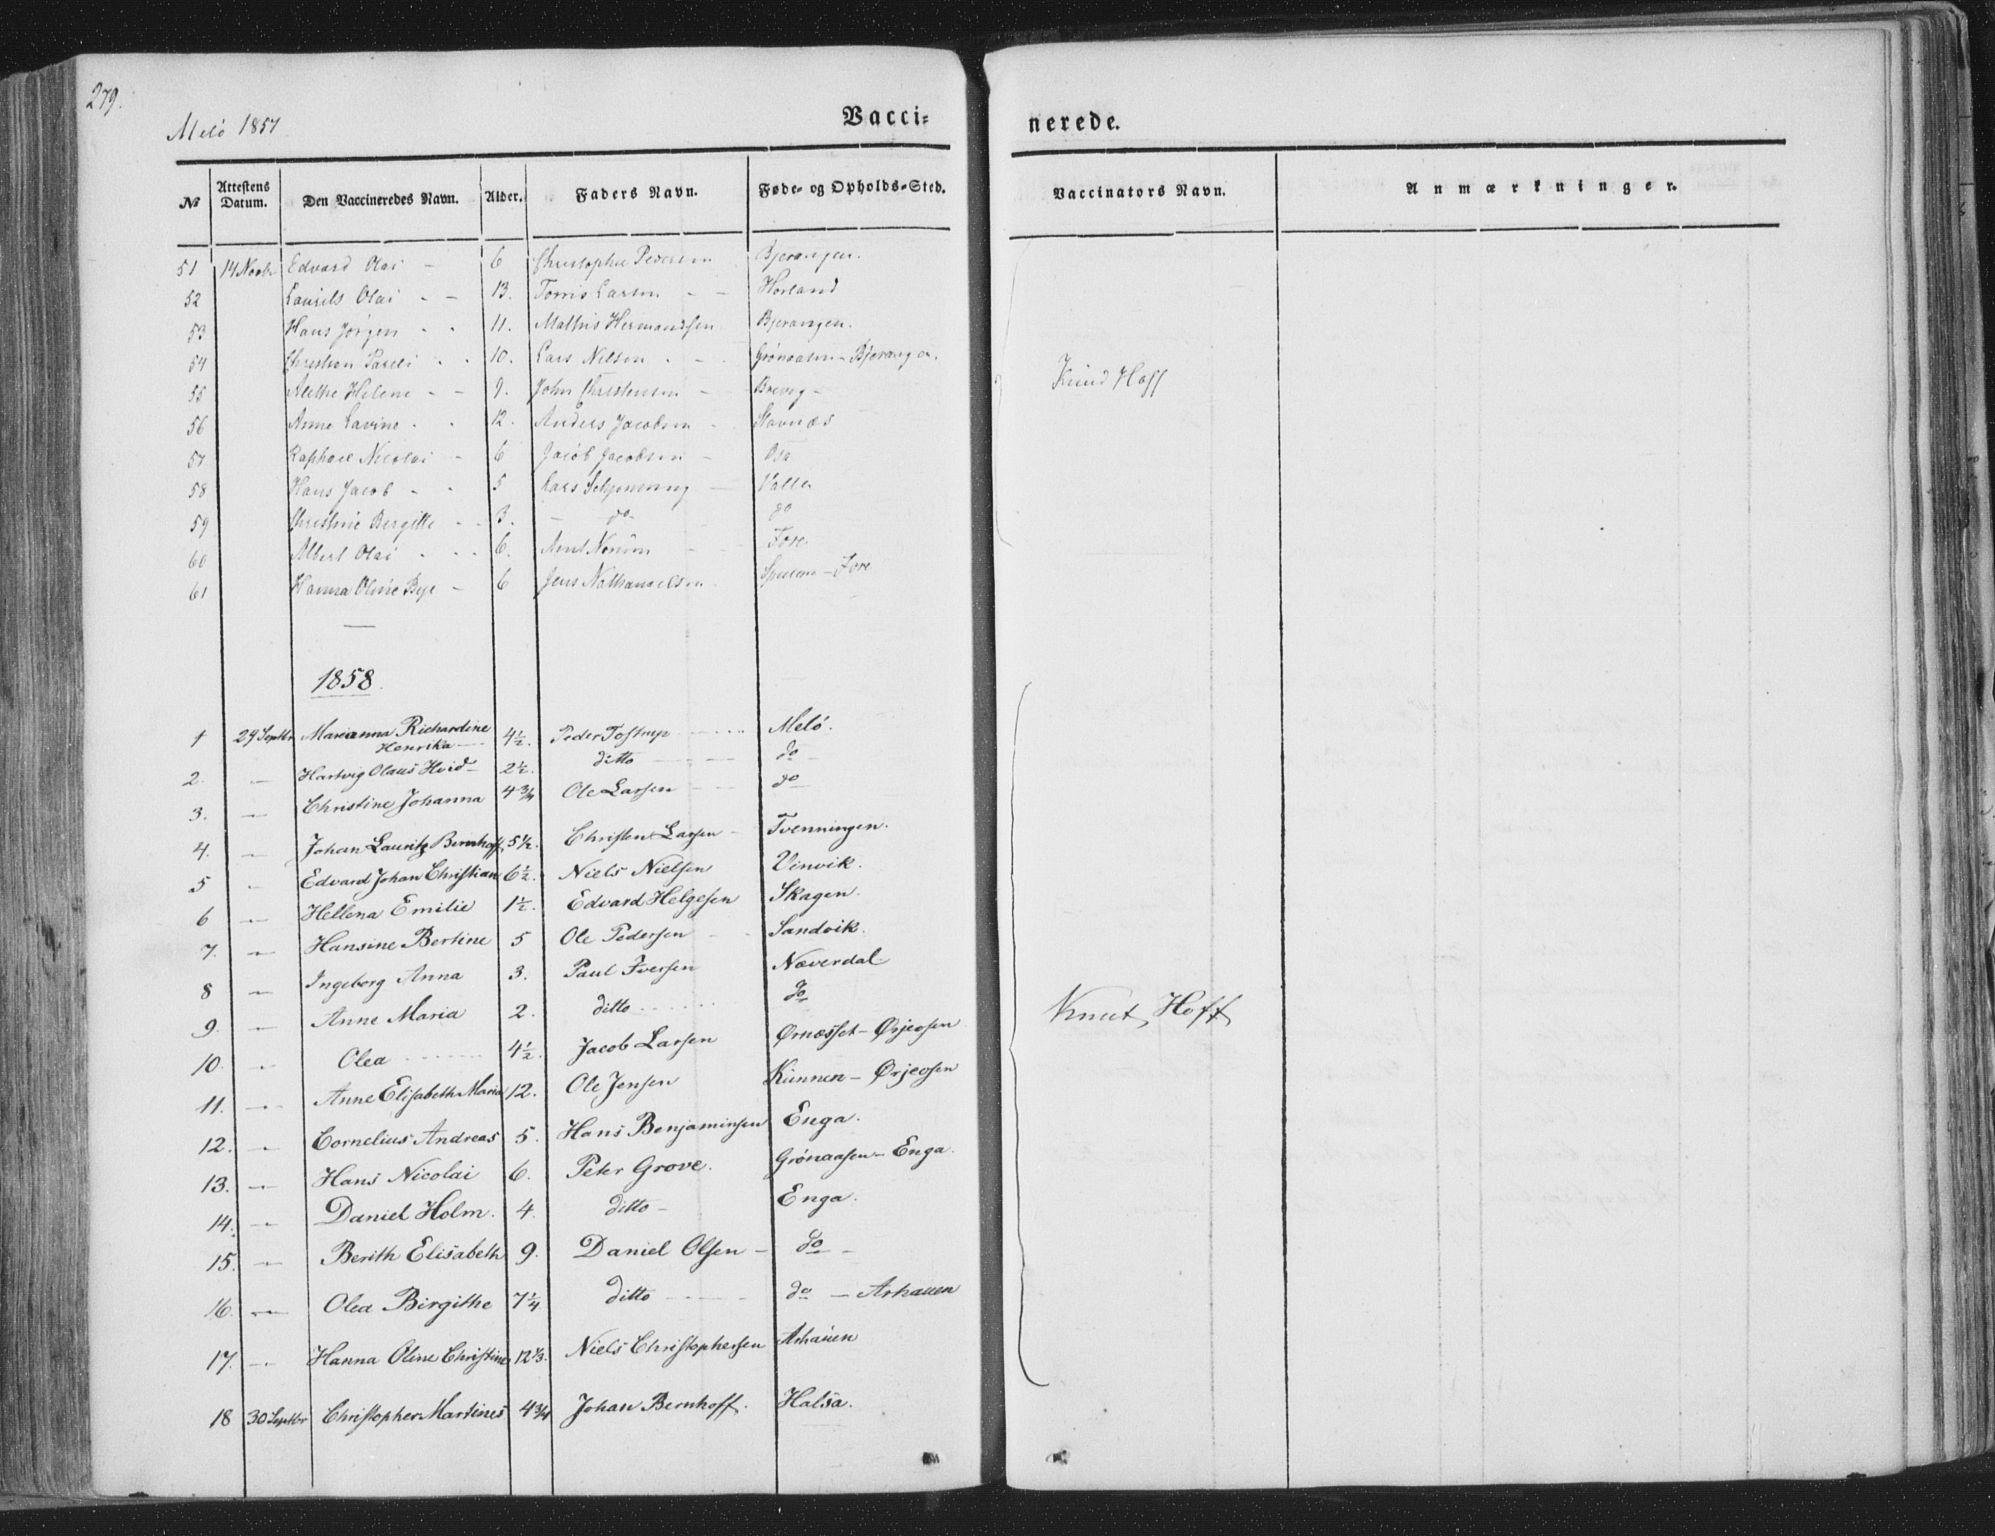 279.
Melö 1857
Vacci=
nerede.
No Attestens Datum. Den Vaccineredes Navn. Alder. Faders Navn. Føde- og Opholds-Sted. Vaccinators Navn. Anmærkninger.
51 14 Novbr Edvard Olai - 6 Christopher Pedersen Bjerangen.
52 Laurits Olai - - 13. Torris Larsen - - Horland
53 Hans Jørgen - - 11. Mathis Hermandsen Bjerangen.
54 Christian Pareli - - 10. Lars Nilsen - - Grönaasen - Bjerangen.
55 Alethe Helene - - 9. John Christensen - Brevig -
Knud Hoff
56 Anne Lavine - - 12. Anders Jacobsen - Stavnæs
57 Raphael Nicolai - 6 Jacob Jacobsen - Osa
58 Hans Jacob - - 5 Lars Schjenning - Valla
59 Christine Bergitte - - 3. - do - do
60 Albert Olai - - - 6. Arnt Nonum - Fore
61 Hanna Oline Bye - 6 Jens Nathanaelsen - Fore
1858.
1 29 Septbr Marianna Richardine Henrika 4½. Peder Tostrup Melö.
2. - Hartvig Olaus Hvid - 2½. ditto do -
3. - Christine Johanna 4¾ Ole Larsen - - do
4. - Johan Lauritz Bernhoff 5½. Christen Larsen - Tvenningen.
5 - Edvard Johan Christian 6½. Niels Nielsen Vinvik.
6 - Hellena Emilie 1½. Edvard Helgesen Skagen.
7. - Hansine Bertine 5 Ole Pedersen - - Sandvik.
8 - Ingeborg Anna 3. Paul Iversen Næverdal
9. - Anne Maria 2. ditto do
Knut Hoff
10. - Olea 4½. Jacob Larsen Ørnæsset - Ørjeosen
11. - Anne Elisabeth Maria 12. Ole Jensen Kunnen - Ørjeosen
12. - Cornelius Andreas 5. Hans Benjaminsen Enga.
13. - Hans Nicolai 6. Peter Grove. Grönaasen - Enga.
14. - Daniel Holm. 4. ditto - Enga.
15. - Berith Elisabeth 9. Daniel Olsen - do -
16. - Olea Birgithe 7¼ ditto do - Arhauen
17. - Hanna Oline Christine 12⅓. Niels Christophersen Arhauen
18 30 Septbr Christopher Martines 4¾ Johan Bernhoff. Halsa.